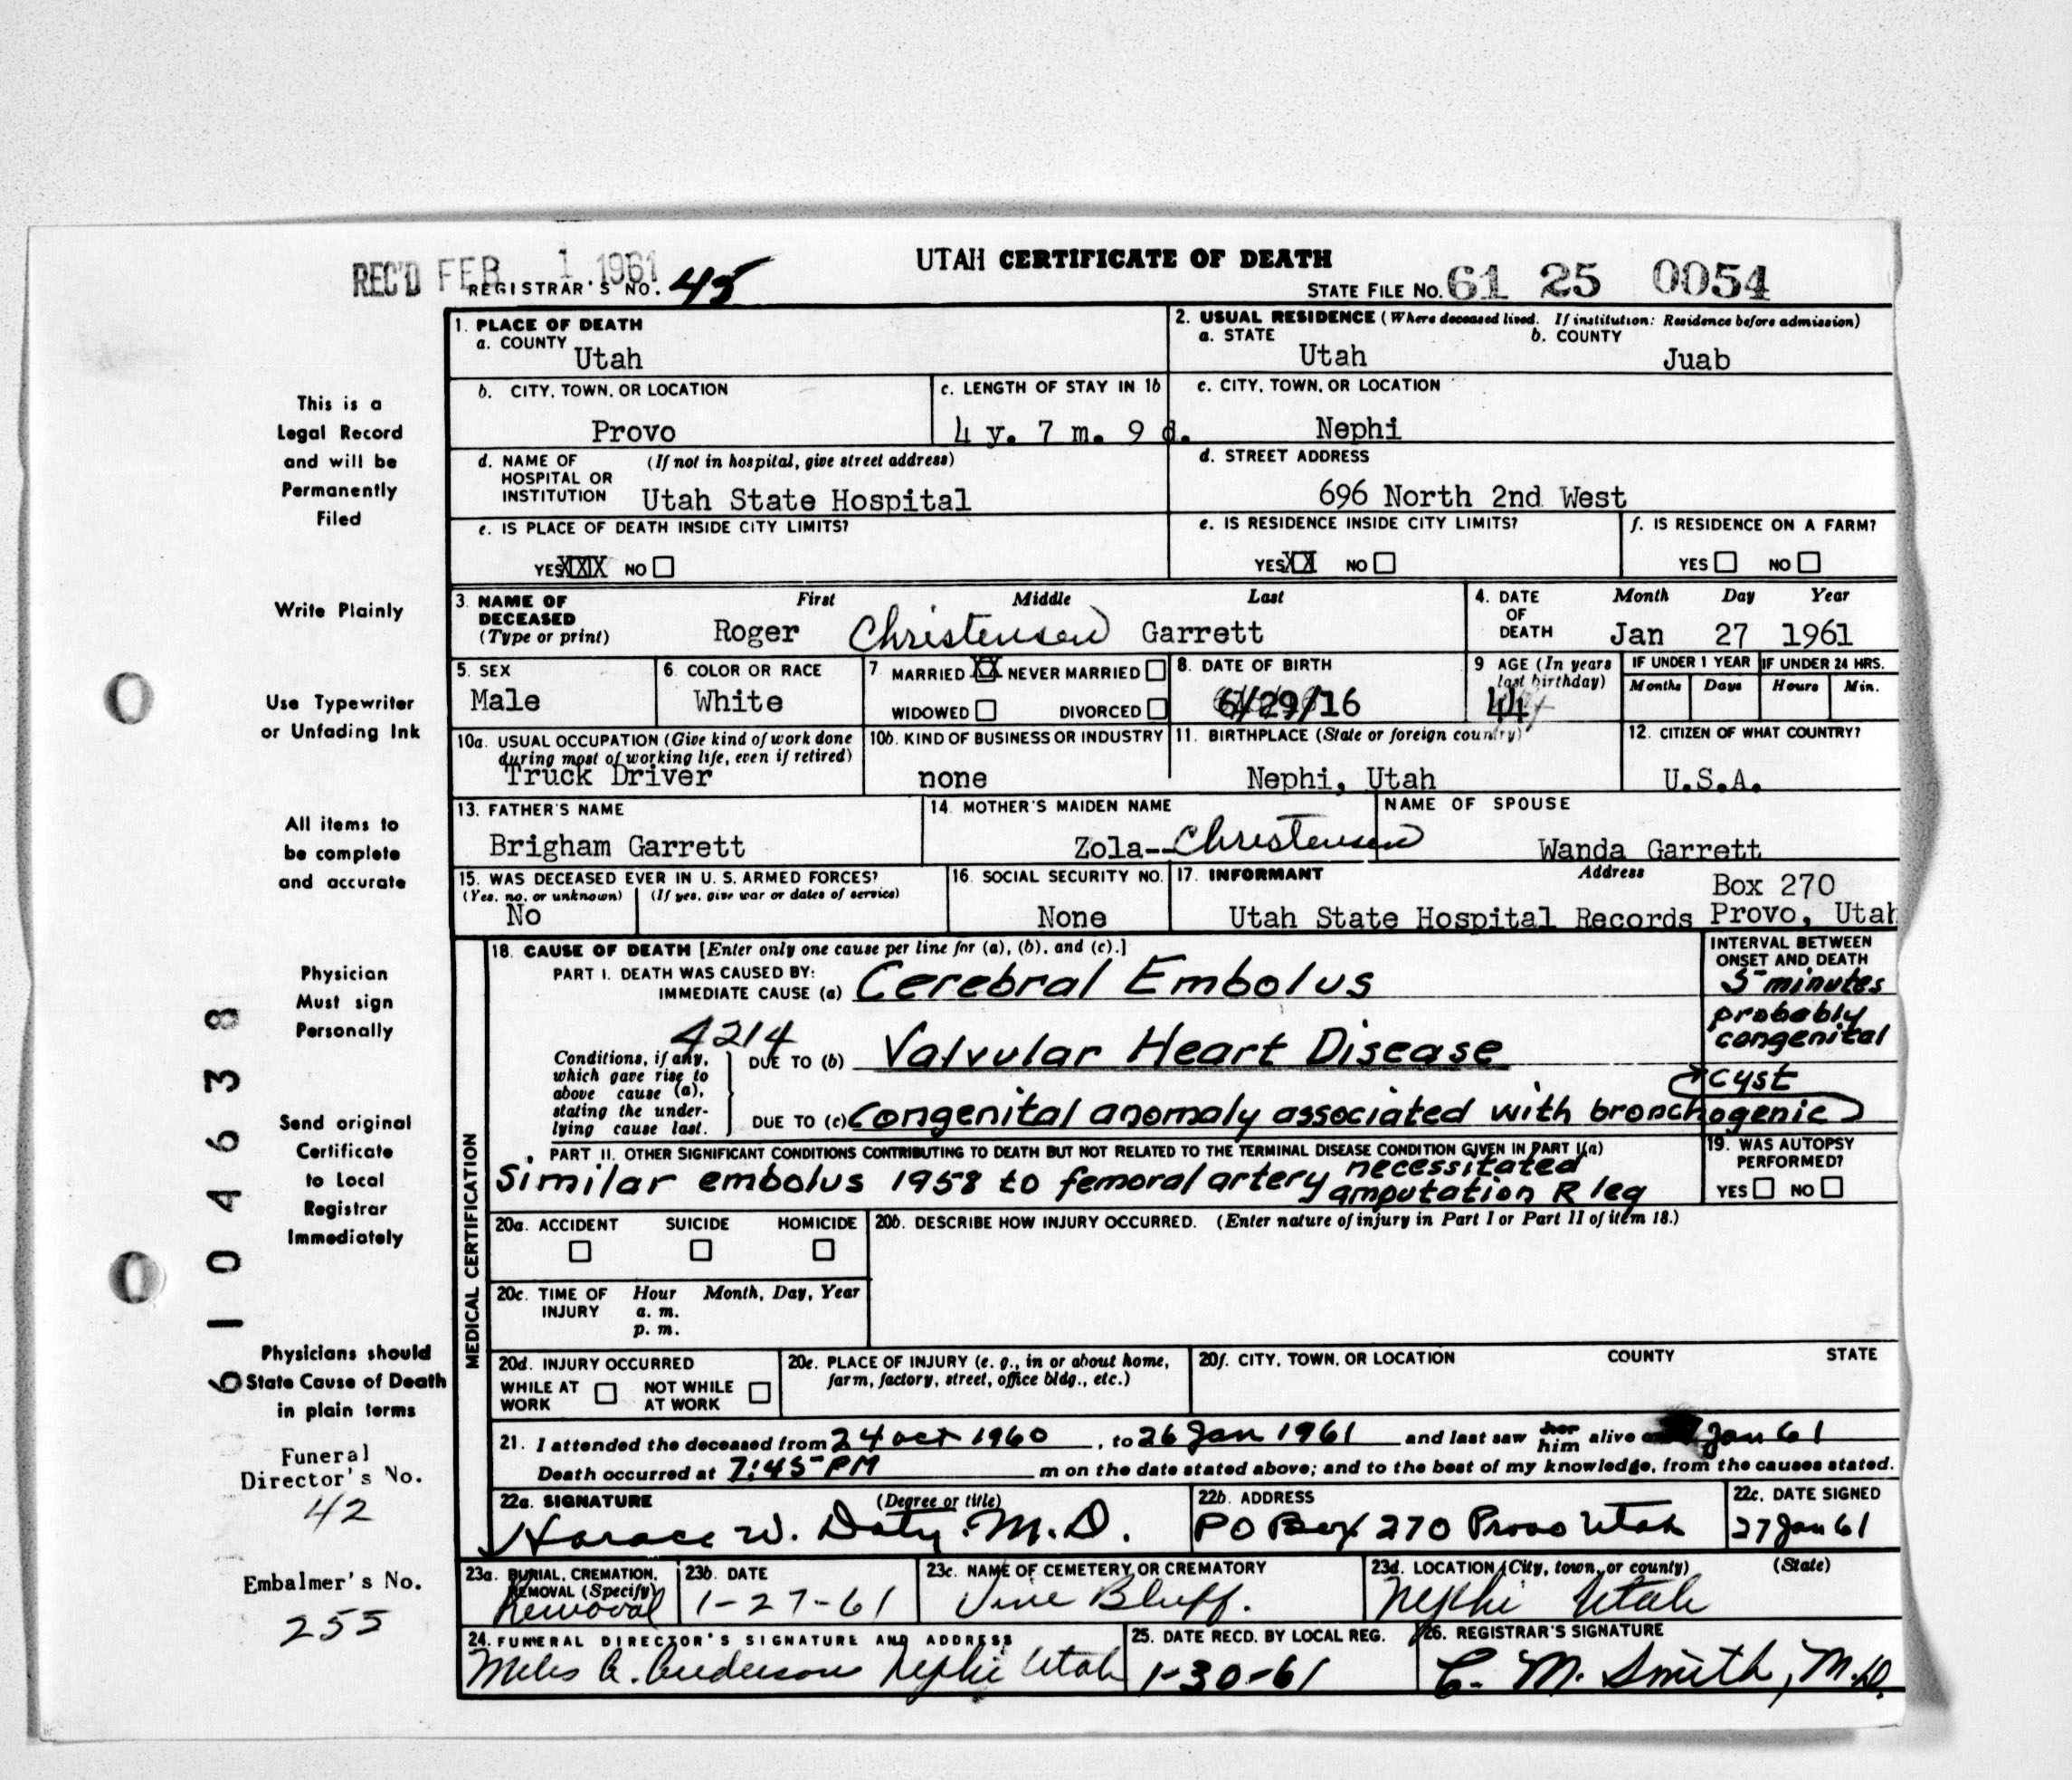 UTAH CERTIFICATE OF DEATH
REC'D FEB 1 1961
REGISTRAR'S NO. 45
STATE FILE NO. 61 25 0054
1. PLACE OF DEATH
a. COUNTY
Utah
2. USUAL RESIDENCE (Where deceased lived. If institution: Residence before admission)
a. STATE b. COUNTY
Utah Juab
b. CITY, TOWN, OR LOCATION
Provo
c. LENGTH OF STAY IN 1b
4 y. 7 m. 9 d.
c. CITY, TOWN, OR LOCATION
Nephi
d. NAME OF (If not in hospital, give street address)
HOSPITAL OR
INSTITUTION Utah State Hospital
d. STREET ADDRESS
696 North 2nd West
e. IS PLACE OF DEATH INSIDE CITY LIMITS?
YES XXX NO
e. IS RESIDENCE INSIDE CITY LIMITS?
YES XX NO
f. IS RESIDENCE ON A FARM?
YES NO
3. NAME OF DECEASED (Type or print)
First Middle Last
Roger Christensen Garrett
4. DATE OF DEATH
Month Day Year
Jan 27 1961
5. SEX
Male
6. COLOR OR RACE
White
7 MARRIED XX NEVER MARRIED
WIDOWED DIVORCED
8. DATE OF BIRTH
6/29/16
9 AGE (In years last birthday)
44
IF UNDER 1 YEAR IF UNDER 24 HRS.
Months Days Hours Min.
10a. USUAL OCCUPATION (Give kind of work done
during most of working life, even if retired)
Truck Driver
10b. KIND OF BUSINESS OR INDUSTRY
none
11. BIRTHPLACE (State or foreign country)
Nephi, Utah
12. CITIZEN OF WHAT COUNTRY?
U.S.A.
13. FATHER'S NAME
Brigham Garrett
14. MOTHER'S MAIDEN NAME
Zola--Christensen
NAME OF SPOUSE
Wanda Garrett
15. WAS DECEASED EVER IN U. S. ARMED FORCES?
(Yes, no, or unknown) (If yes, give war or dates of service)
No
16. SOCIAL SECURITY NO.
None
17. INFORMANT Address
Utah State Hospital Records
Box 270
Provo, Utah
MEDICAL CERTIFICATION
18. CAUSE OF DEATH [Enter only one cause per line for (a), (b), and (c).]
PART I. DEATH WAS CAUSED BY:
IMMEDIATE CAUSE (a) Cerebral Embolus
INTERVAL BETWEEN
ONSET AND DEATH
5 minutes
probably
congenital
4214
Conditions, if any,
which gave rise to
above cause (a),
stating the under-
lying cause last.
DUE TO (b) Valvular Heart Disease
DUE TO (c) Congenital anomaly associated with bronchogenic
cyst
PART II. OTHER SIGNIFICANT CONDITIONS CONTRIBUTING TO DEATH BUT NOT RELATED TO THE TERMINAL DISEASE CONDITION GIVEN IN PART I(a)
Similar embolus 1958 to femoral artery necessitated
amputation R leg
19. WAS AUTOPSY
PERFORMED?
YES NO
20a. ACCIDENT SUICIDE HOMICIDE
20b. DESCRIBE HOW INJURY OCCURRED. (Enter nature of injury in Part I or Part II of item 18.)
20c. TIME OF INJURY Hour Month, Day, Year
a. m.
p. m.
20d. INJURY OCCURRED
WHILE AT WORK NOT WHILE AT WORK
20e. PLACE OF INJURY (e. g., in or about home,
farm, factory, street, office bldg., etc.)
20f. CITY, TOWN, OR LOCATION COUNTY STATE
21. I attended the deceased from 24 Oct 1960, to 26 Jan 1961 and last saw her him alive Jan 61
Death occurred at 7:45 PM m on the date stated above; and to the best of my knowledge, from the causes stated.
22a. SIGNATURE (Degree or title)
Horace W. Doty. M.D.
22b. ADDRESS
PO Box 270 Provo Utah
22c. DATE SIGNED
27 Jan 61
23a. BURIAL, CREMATION,
REMOVAL (Specify)
Removal
23b. DATE
1-27-61
23c. NAME OF CEMETERY OR CREMATORY
Vine Bluff.
23d. LOCATION (City, town, or county) (State)
Nephi Utah
24. FUNERAL DIRECTOR'S SIGNATURE AND ADDRESS
Miles A. Anderson Nephi Utah
25. DATE RECD. BY LOCAL REG.
1-30-61
26. REGISTRAR'S SIGNATURE
C. M. Smith, M.D.
This is a
Legal Record
and will be
Permanently
Filed
Write Plainly
Use Typewriter
or Unfading Ink
All items to
be complete
and accurate
Physician
Must sign
Personally
Send original
Certificate
to Local
Registrar
Immediately
Physicians should
State Cause of Death
in plain terms
Funeral
Director's No.
42
Embalmer's No.
255
6104638